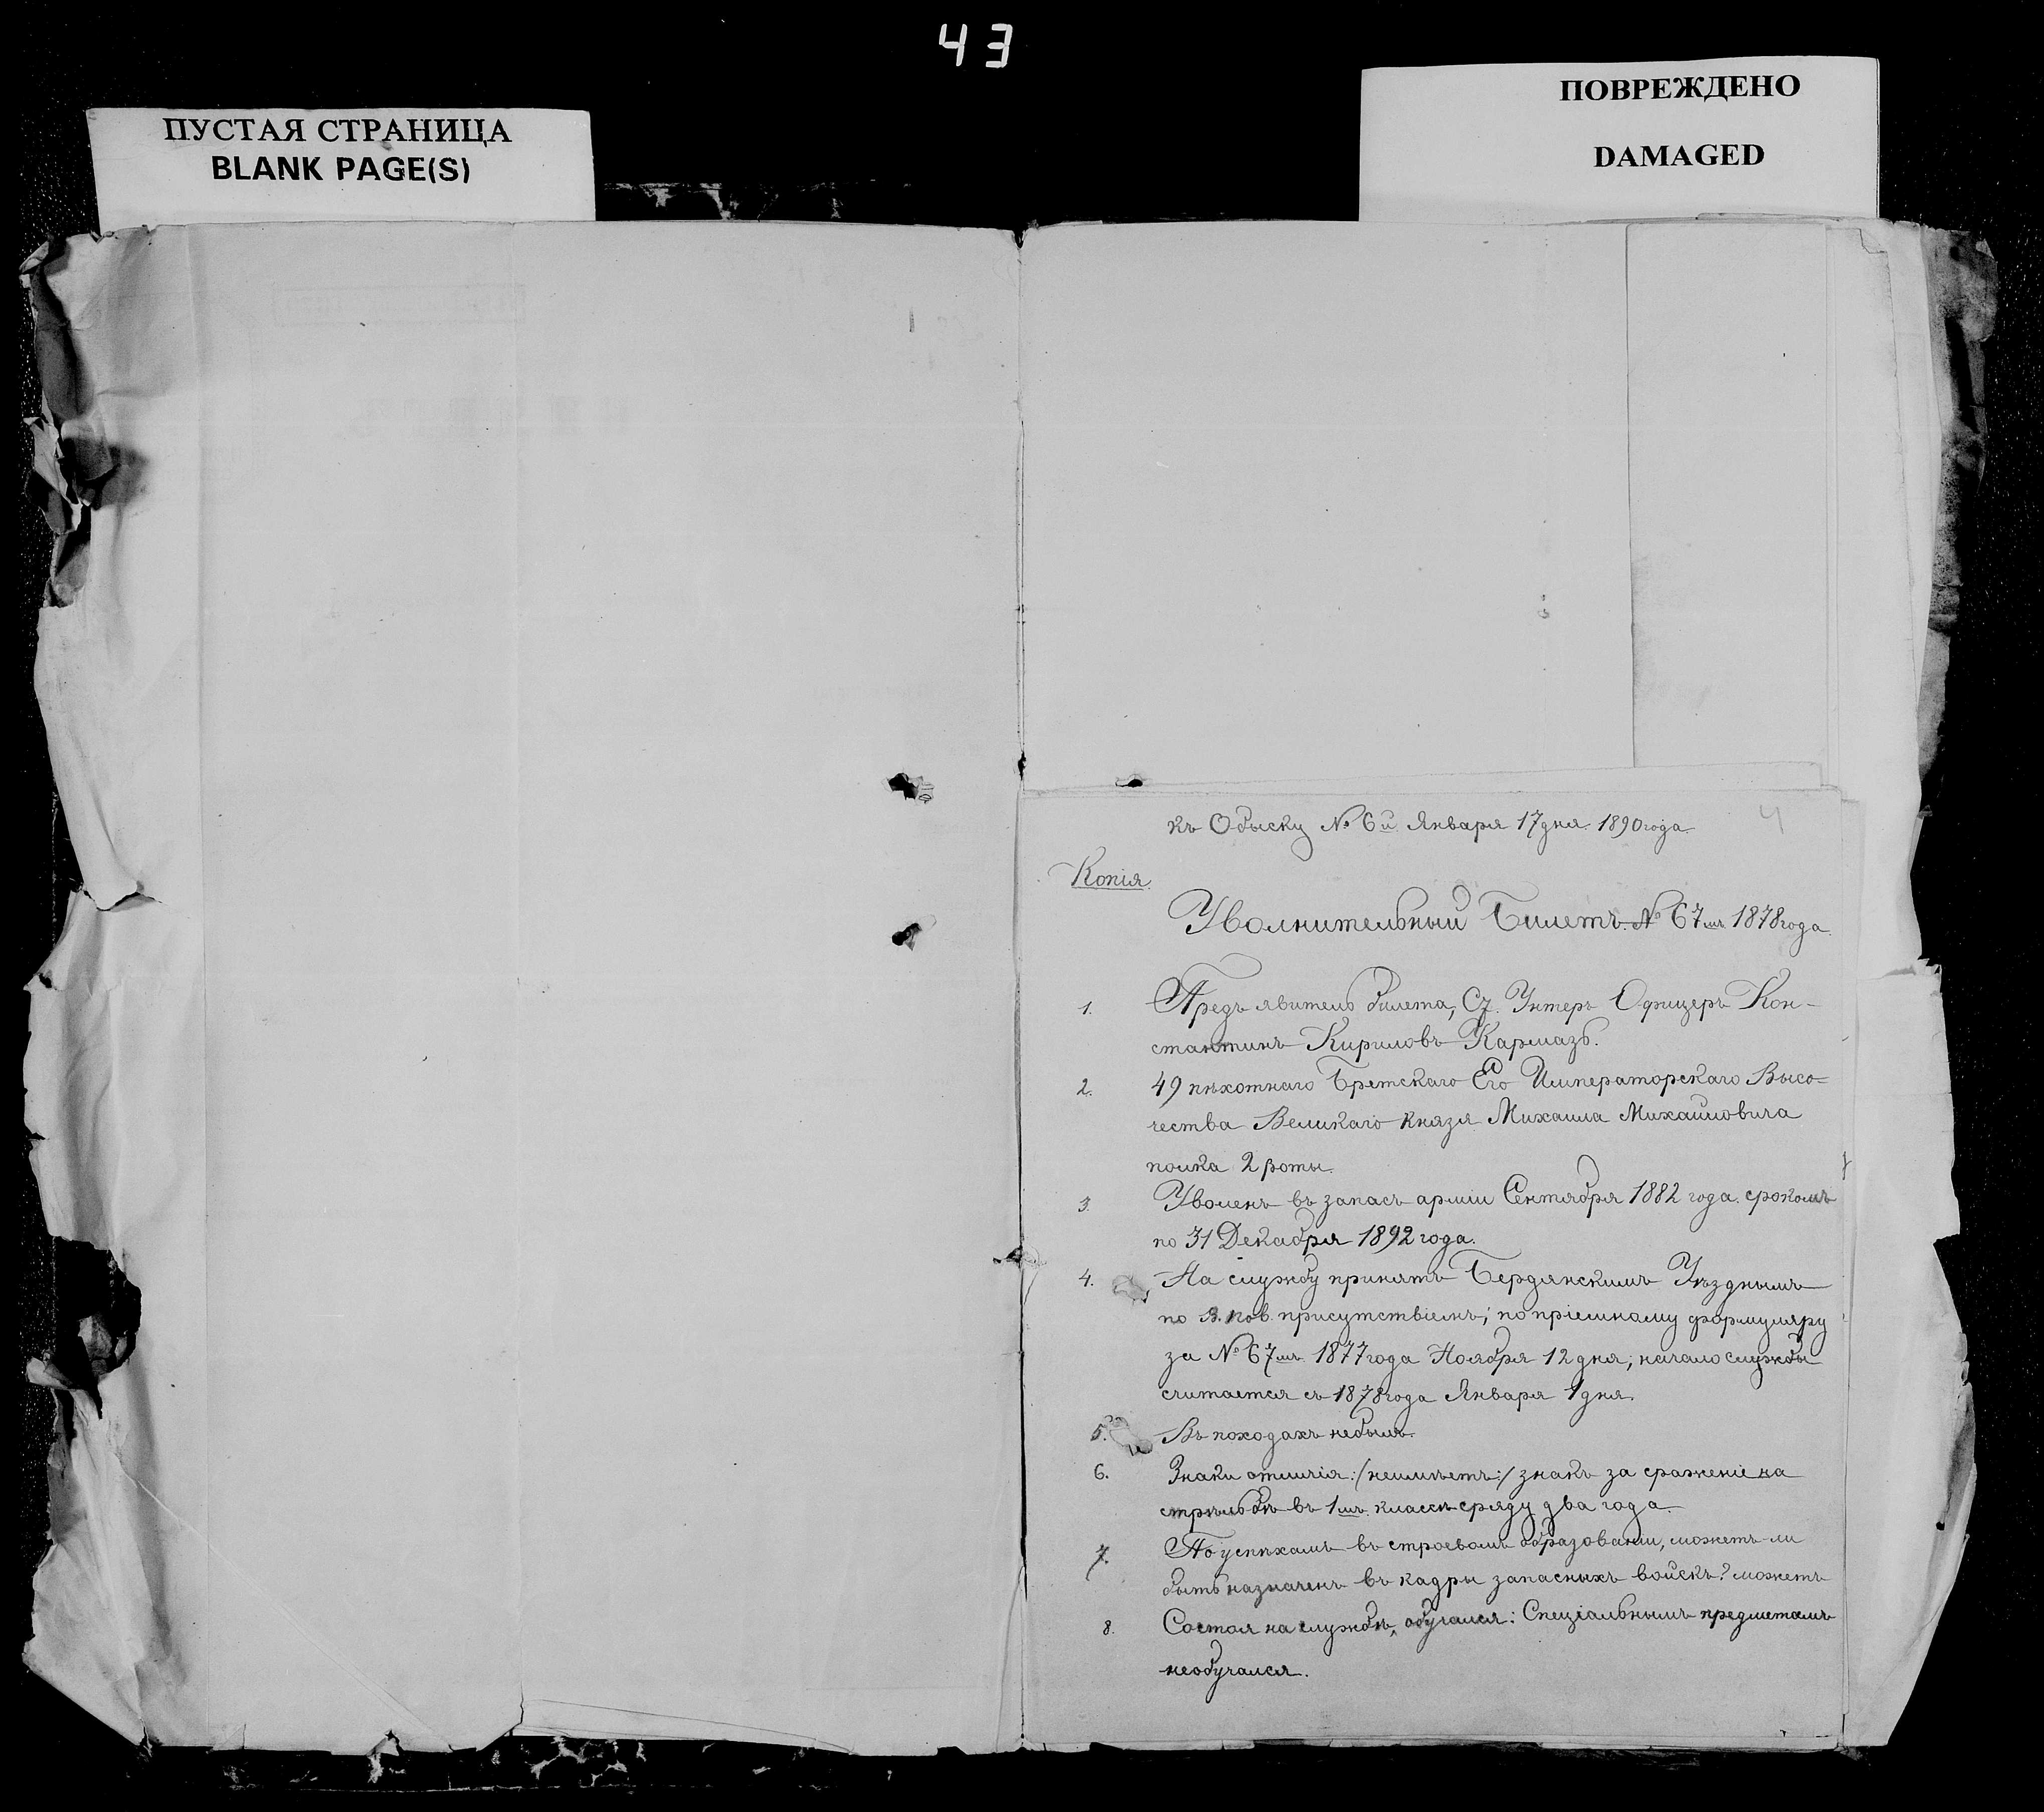 43
ПУСТАЯ СТРАНИЦА
BLANK PAGE(S)
ПОВРЕЖДЕНО
DAMAGED
4
къ Обыску № 6й Января 17 дня 1890 года.
Копія.
Уволнительный Билетъ № 67мъ 1878 года.
1. Предъявитель билета, Ст. Унтеръ Офицеръ Кон-
стантинъ Кириловъ Кармазь.
2. 49 пѣхотнаго Бретскаго Его Императорскаго Высо=
чества Великаго Князя Михаила Михайловича
полка 2 роты.
3. Уволенъ въ запасъ арміи Сентября 1882 года срокомъ
по 31 Декабря 1892 года.
4. На службу принятъ Бердянскимъ Уѣзднымъ
по В. пов. присутствіемъ; по пріемному формуляру
за № 67мъ 1877 года Ноября 12 дня; начало службы
считается съ 1878 года Января 1 дня.
5. Въ походахъ небылъ.
6. Знаки отличія: /неимѣетъ:/ знакъ за сраженіе на
стрѣльбѣ въ 1мъ классѣ сряду два года
7. По успѣхамъ въ строевомъ образованіи, можетъ-ли
быть назначенъ въ кадры запасныхъ войскъ? можетъ
8. Состоя на службѣ, обучался: Спеціальнымъ предметамъ
необучался.